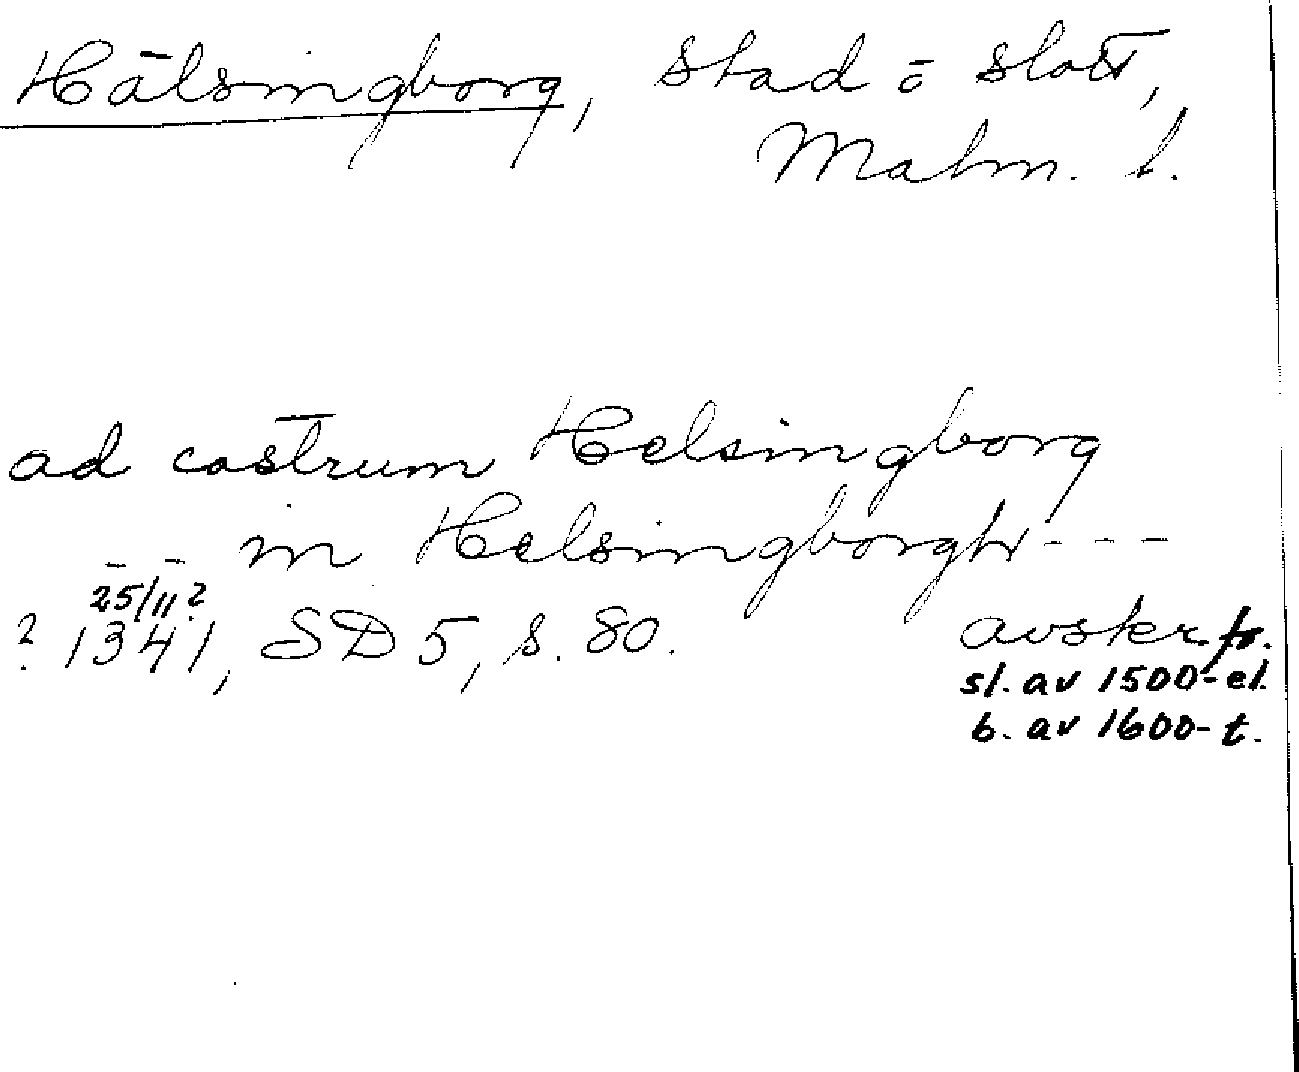 Hälsingborg, stad o slott,
Malm. l.
ad castrum Helsingborg
- - in Helsingborgh - - -
25/11?
? 1341, SD 5, s. 80. avskr. fr.
sl. av 1500- el.
b. av 1600-t.